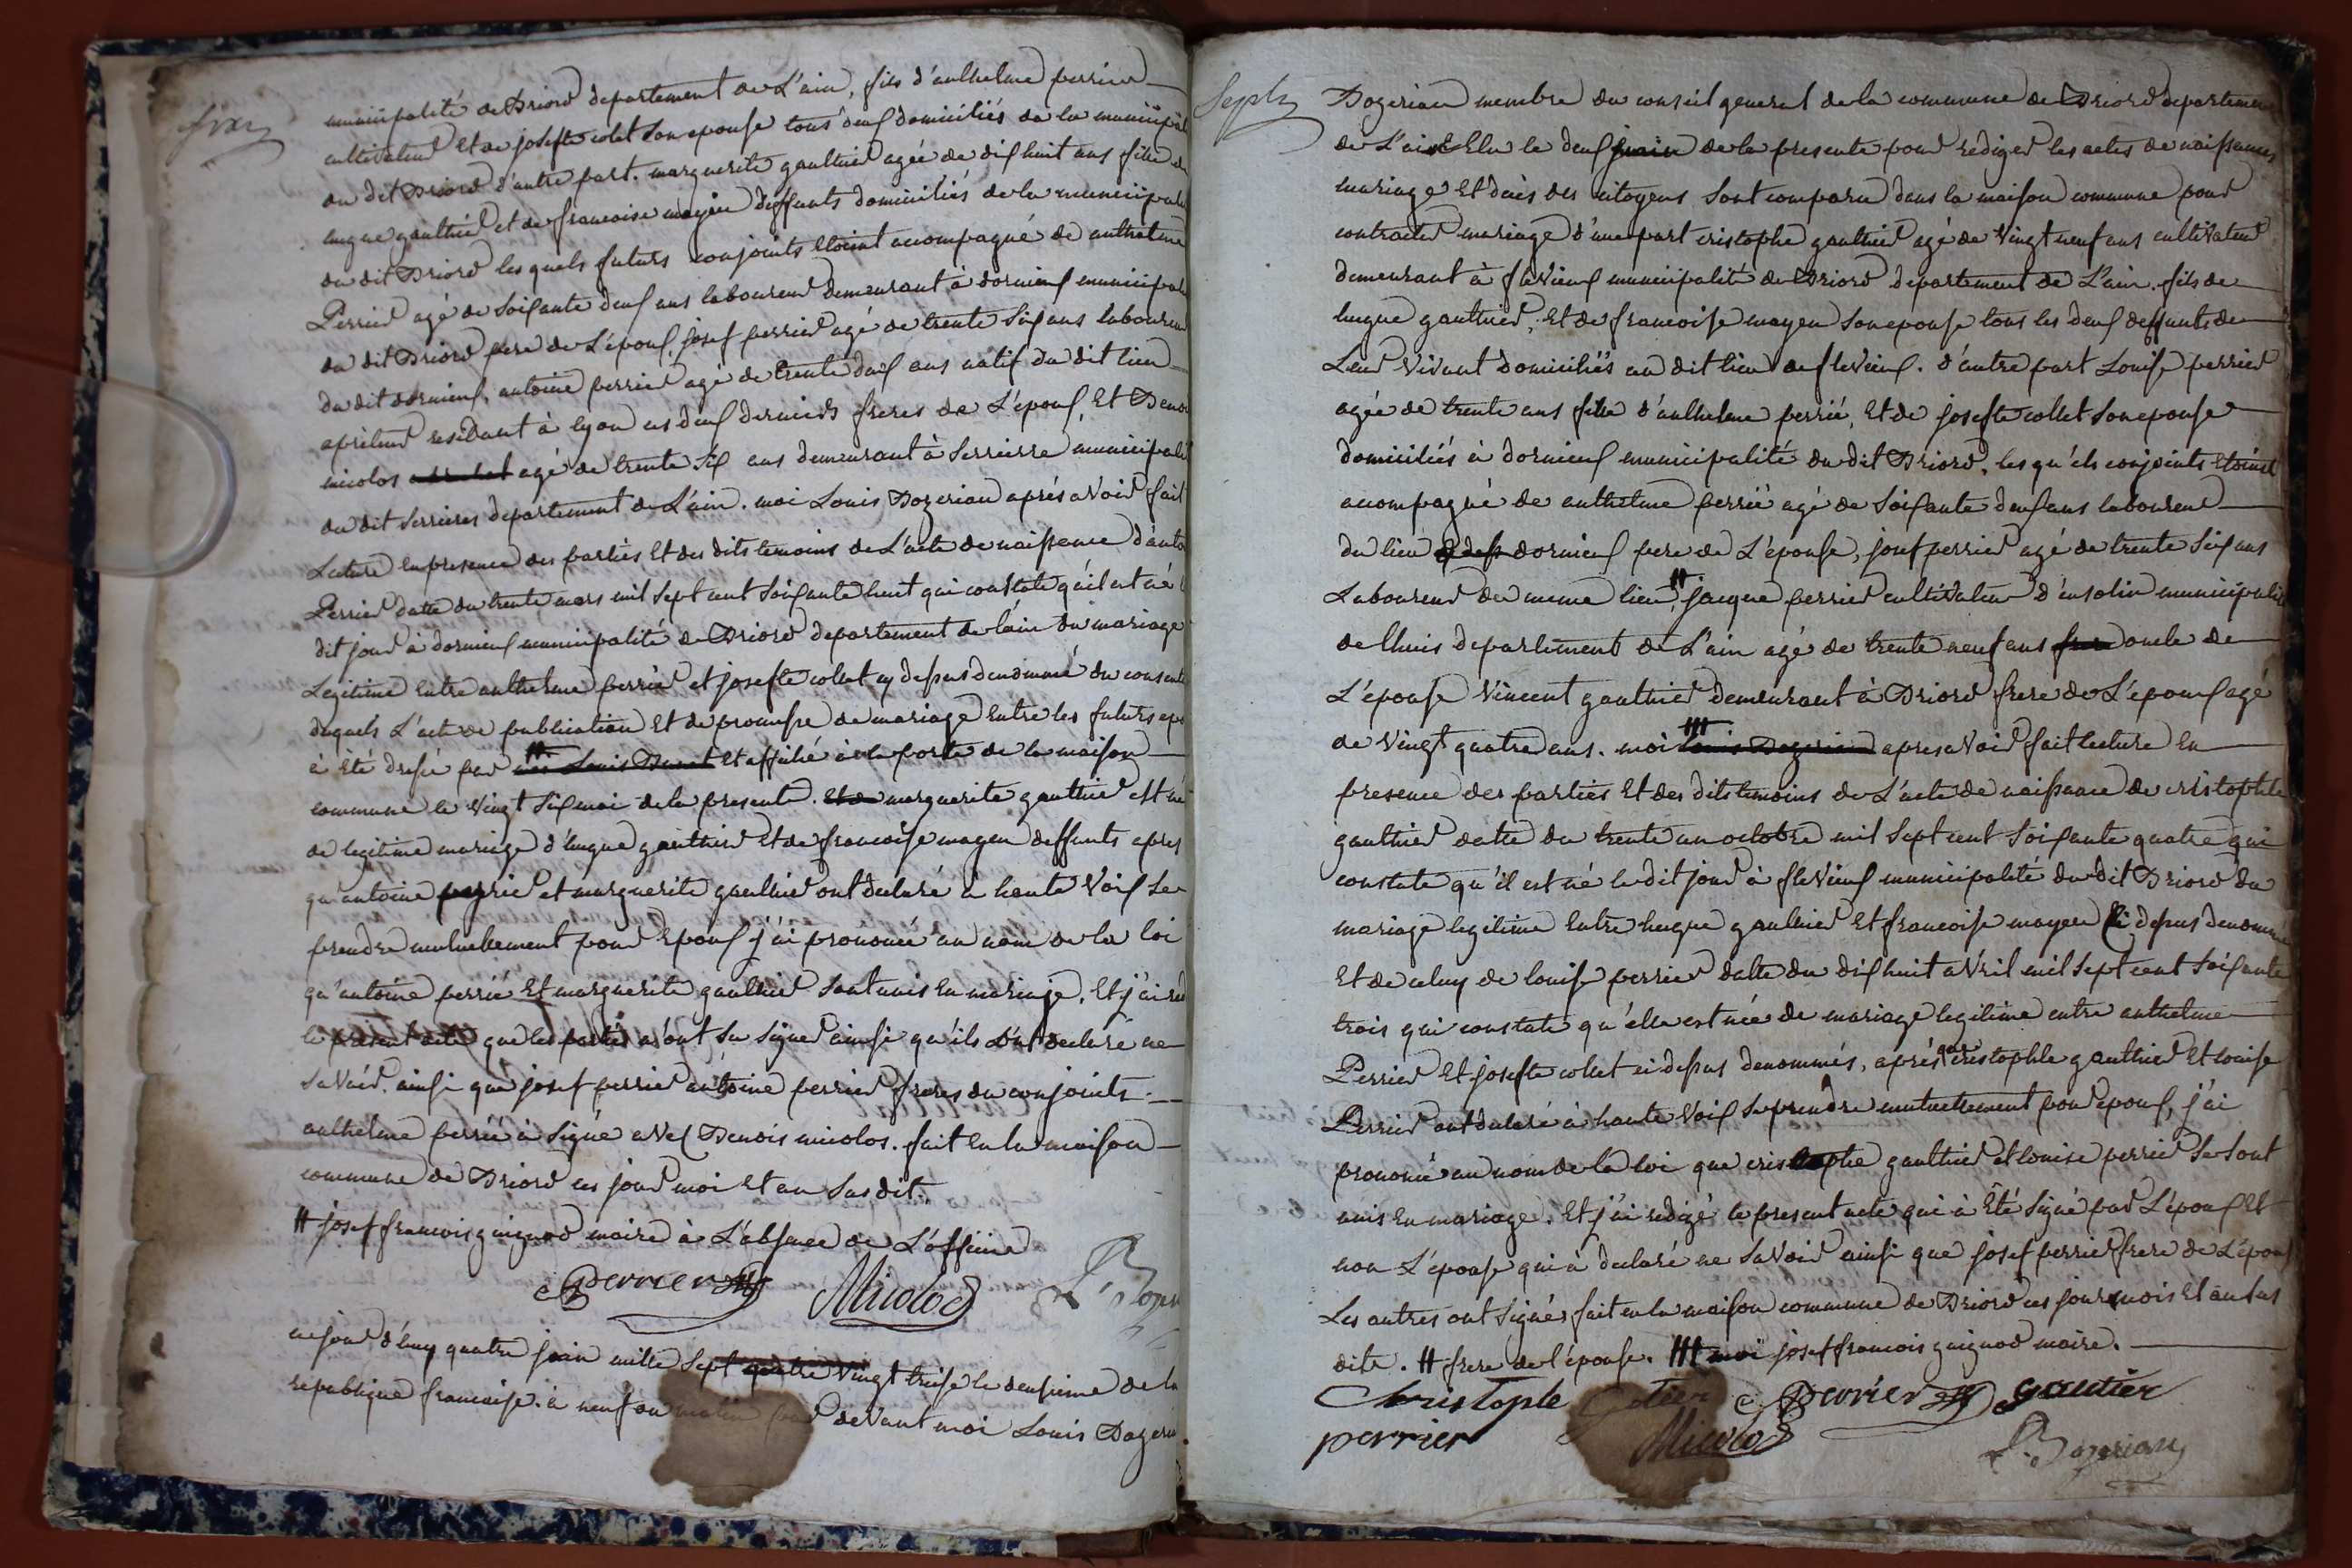 municipalité de Briord departement de L'ain, fils d'anthelme perrier
cultivateur et de josefte colet son epouse tous deux domiciliés de la municipal
du dit Briord d'autre part. marguerite gauthier agée de dix huit ans fille de
hugue gauthier et de francoise mayen deffunts domiciliés de la municipal
du dit Briord les quels futurs conjoints etoient accompagné de anthelme
Perrier agé de soixante deux ans laboureur demeurant à dornieux municipal
du dit Briord pere de L'epoux, josef perrier agé de trente six ans laboureur
du dit dornieux, antoine perrier agé de trente deux ans natif du dit lieu
residant à lyon ces deux derniers freres de L'époux, Et Benoi
micolos agé de trente six ans demeurant à Serrierre municipal
du dit Serrieres departement de L'ain. moi Louis Bozerian aprés avoir fait
Lecture en presence des parties Et des dits temoins de L'acte de naissence d'anto
Perrier datte du trente mars mil sept cent soixante huit qui constate qu'il est né l
dit jour à dornieux municipalité de Briord departement de lain du mariage
Legitime Entre anthelme perrier et josefte colet cy dessus denommé du consent
duquels L'acte de publication Et de promesse de mariage Entre les futurs epo
à été dressé par # moi Louis Et affiché à la porte de la maison
commune le vingt six mai de la presente. Et de marguerite gauthier est né
de legitime mariage d'hugue gauthier Et de francoise mayen deffunts apres
qu'antoine perrier et marguerite gauthier ont declaré à haute voix se
prendre mutuellement pour Epoux j'ai prononcé au nom de la loi
qu'antoine perrié Et marguerite gauthier sont unis En mariage, Et j'ai red
le present acte que les parties n'ont su signer ainsi qu'ils L'ont declaré ne
savoir. ainsi que josef perrier antoine perrier freres du conjoints
anthelme perrié à signé avec Benois micolos. fait En la maison
commune de Briord ces jour moi Et an susdit.
# josef francois guignod maire à L'absence de L'officie
Perrier Micolos L. Bozer
ce jour d'huy quatre juin mille sept quatre vingt treise le deuxieme de la
republique francaise. à neuf du matin par devant moi Louis Bozerian
Septz Bozerian membre du conseil general de la commune de Briord departemen
de L'ain Elu le deux juin de la presente pour rediger les actes de naissances
mariage Et décés des citoyens sont comparu dans la maison commune pour
contracter mariage d'une part cristophe gauthier agé de vingt neuf ans cultivateur
demeurant à flevieux municipalité de Briord departement de L'ain. fils de
hugue gauthier, Et de francoise mayen son epouse tous les deux deffunts de
Leur vivant domiciliés au dit lieu de flevieux. d'autre part Louise perrier
agée de trente ans fille d'anthelme perrié, Et de josefte collet son epouse
domiciliés à dornieux municipalité du dit Briord, les qu'els conjoints Etoint
accompagné de anthelme perrié agé de soixante deux ans laboureur
du lieu dornieux pere de L'épouse, josef perrier agé de trente six ans
Laboureur du meme lieu, # jacque perrier cultivateur d'ansolin municipalité
de lhuis departement de L'ain agé de trente neuf ans frere oncle de
L'épouse Vincent gauthier demeurant à Briord frere de L'époux agé
de vingt quatre ans. moi ### Louis Bozerian apres avoir fait lecture En
presence des parties Et des dits temoins de L'acte de naissance de cristophle
gauthier datte du trente un octobre mil sept cent soixante quatre qui
constate qu'il est né le dit jour à flevieux municipalité du dit Briord du
mariage legitime Entre hugue gauthier Et francoise mayen ci dessus denommé
Et de celuy de louise perrier datte du dix huit avril mil sept cent soixante
trois qui constate qu'elle est née de mariage legitime entre anthelme
Perrier Et josefte collet ci dessus denommés, aprés que cristophle gauthier Et louise
Perrier ont declaré à haute voix se prendre mutuellement pour epoux, j'ai
prononcé au nom de la loi que cristophe gauthier et louise perrier se sont
unis En mariage. Et j'ai redigé le present acte qui à Été signé par L'époux Et
non L'épouse qui à declaré ne savoir ainsi que josef perrier frere de L'epouse
Les autres ont signés fait en la maison commune de Briord ces jour mois Et an sus
dits. # frere de l'épouse. ### moi josef francois guignod maire.
Christople Perrier gautier
perrier Micolos L. Bozerian